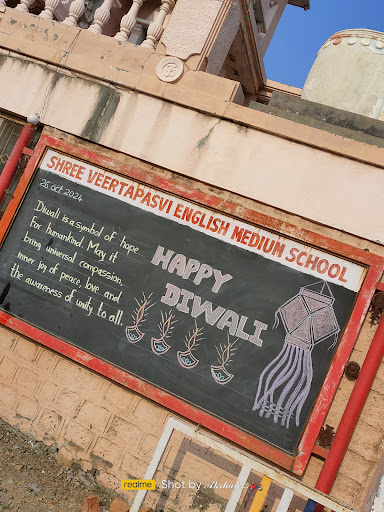 SHREE VEERTAPASVI ENGLISH MEDIUM SCHOOL
26 Oct 2024
Diwali is a symbol of hope
for humankind. May it
bring universal compassion,
inner joy of peace, love and
the awareness of unity to all.
HAPPY
DIWALI
realme
Shot by